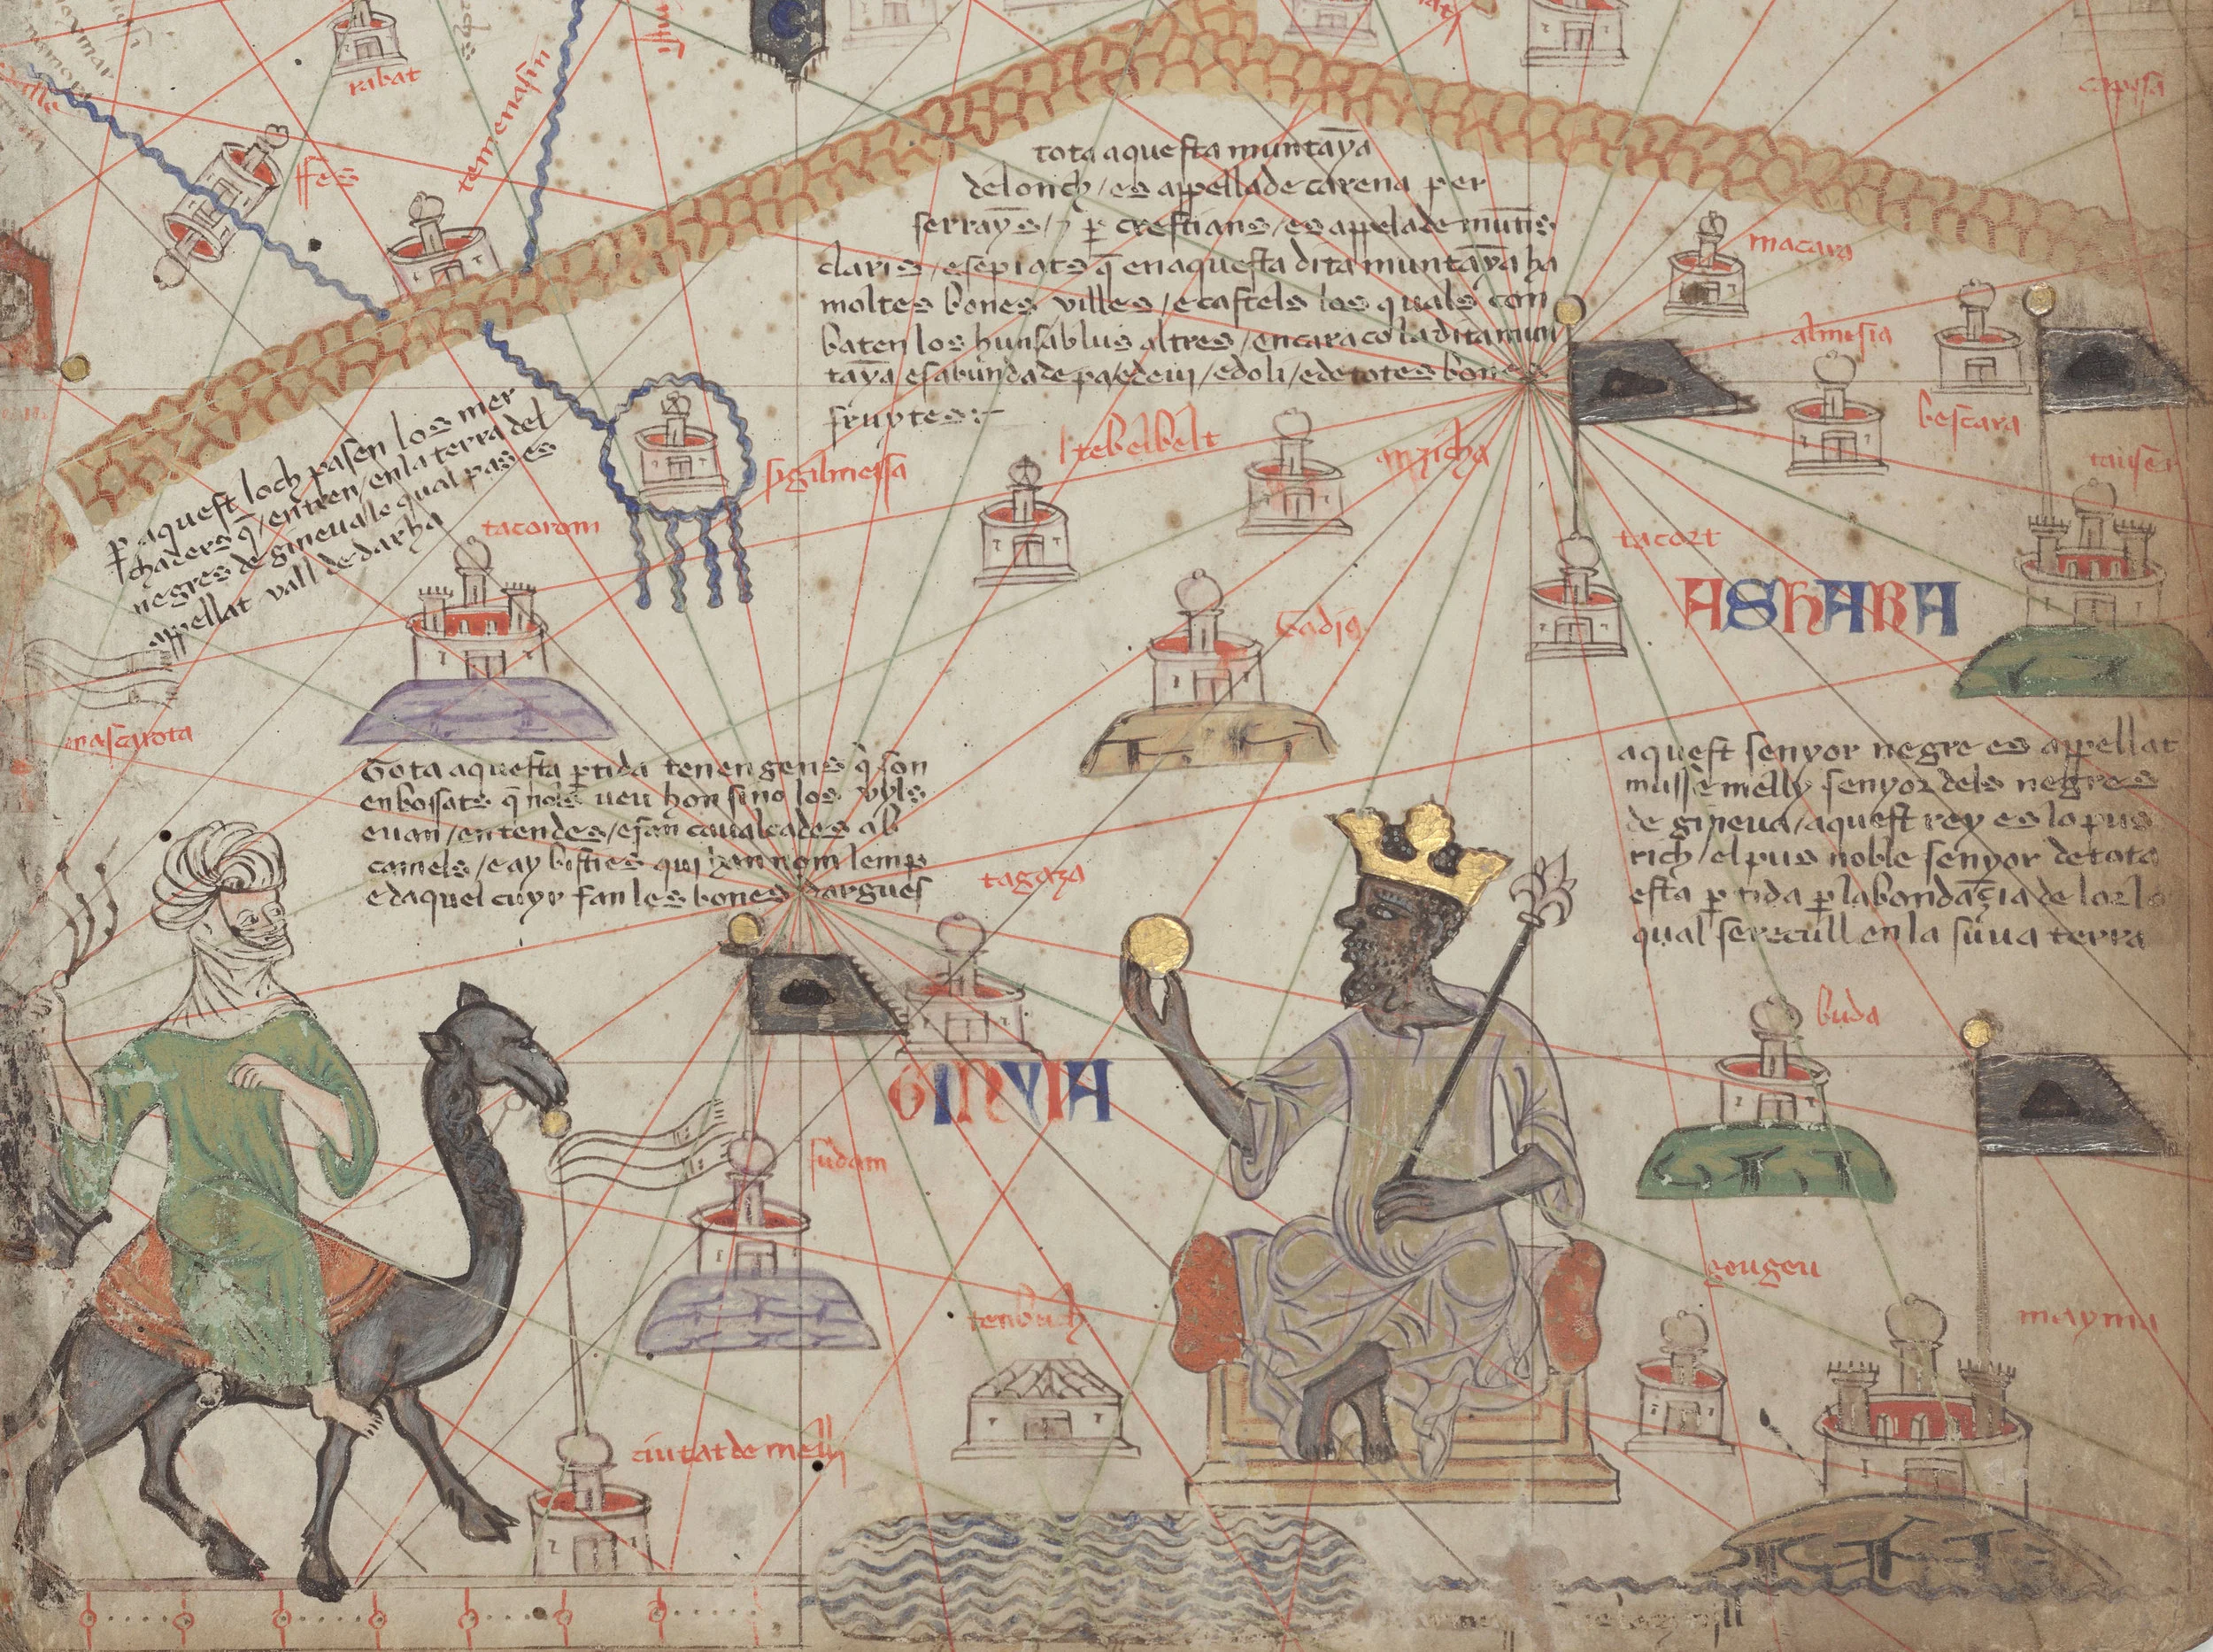 ribat
ffes
temenasin
capisa
tota aquesta muntaya
de lonch / es appellade carena per
serrayns / e per crestians / es appelade muntis
claris / e sepiats q̄ en aquesta dita muntaya ha
moltes bones villes / e castels los quals con
baten los huns ab lus altres / encara co la dita mun
taya es abundade pa / e de vi / e doli / e de totes bones
fruytes:~
macara
almisia
bescara
p̱ aquest loch pasen los mer
chaders q̄ / entren / en la terra del
negres de gineua / lo qual pas es
appellat vall de darha
tacorom
sigilmessa
tebelbelt
anzicha
tacort
ASHARA
tadig
mascarota
Tota aquesta p̱tida tenen gens q̄ son
enbossats q̄ nols veu hon sino los vyls
e van / en tendes / e fan caualcades ab
camels / e ay bisties qui han nom lemp
e daquel cuyr fan les bones dargues
tagaza
aquest senyor negre es appellat
musse melly senyor dels negres
de gineua / aquest rey es lo pus
rich / el pus noble senyor de tota
esta p̱tida p̱ labondaçia de lor lo
qual se recull en la suua terra
buda
GINYIA
sudam
tenbuch
geugeu
mayma
ciutat de melly